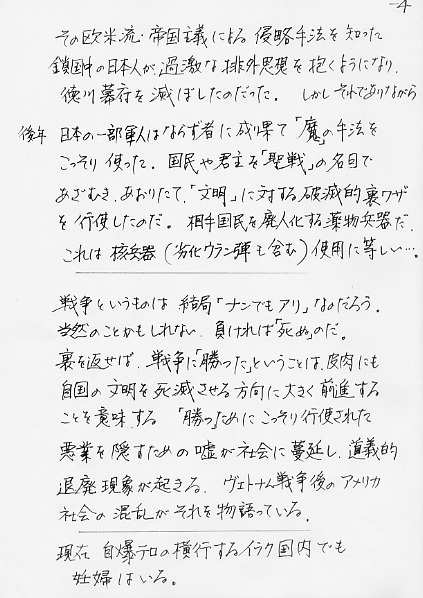 -4
その欧米流・帝国主義による 侵略手法を知った
鎖国中の日本人が、過激な排外思想を抱くようになり、
徳川幕府を滅ぼしたのだった。 しかしそれでありながら
後年 日本の一部軍人はならず者に成り果て「魔」の手法を
こっそり使った。 国民や君主を「聖戦」の名目で
あざむき、あおりたて、「文明」に対する破滅的裏ワザ
を行使したのだ。 相手国民を廃人化する薬物兵器だ。
これは 核兵器 (劣化ウラン弾も含む) 使用に等しい…。
戦争というものは 結局「ナンでもアリ」なのだろう。
当然のことかもしれない、負ければ「死ぬ」のだ。
裏を返せば、戦争に「勝った」ということは、皮肉にも
自国の文明を死滅させる方向に大きく前進する
ことを意味する 「勝つ」ためにこっそり行使された
悪業を隠すための嘘が社会に蔓延し、道義的
退廃現象が起きる。 ヴェトナム戦争後のアメリカ
社会の混乱がそれを物語っている。
現在 自爆テロの横行するイラク国内でも
妊婦はいる。